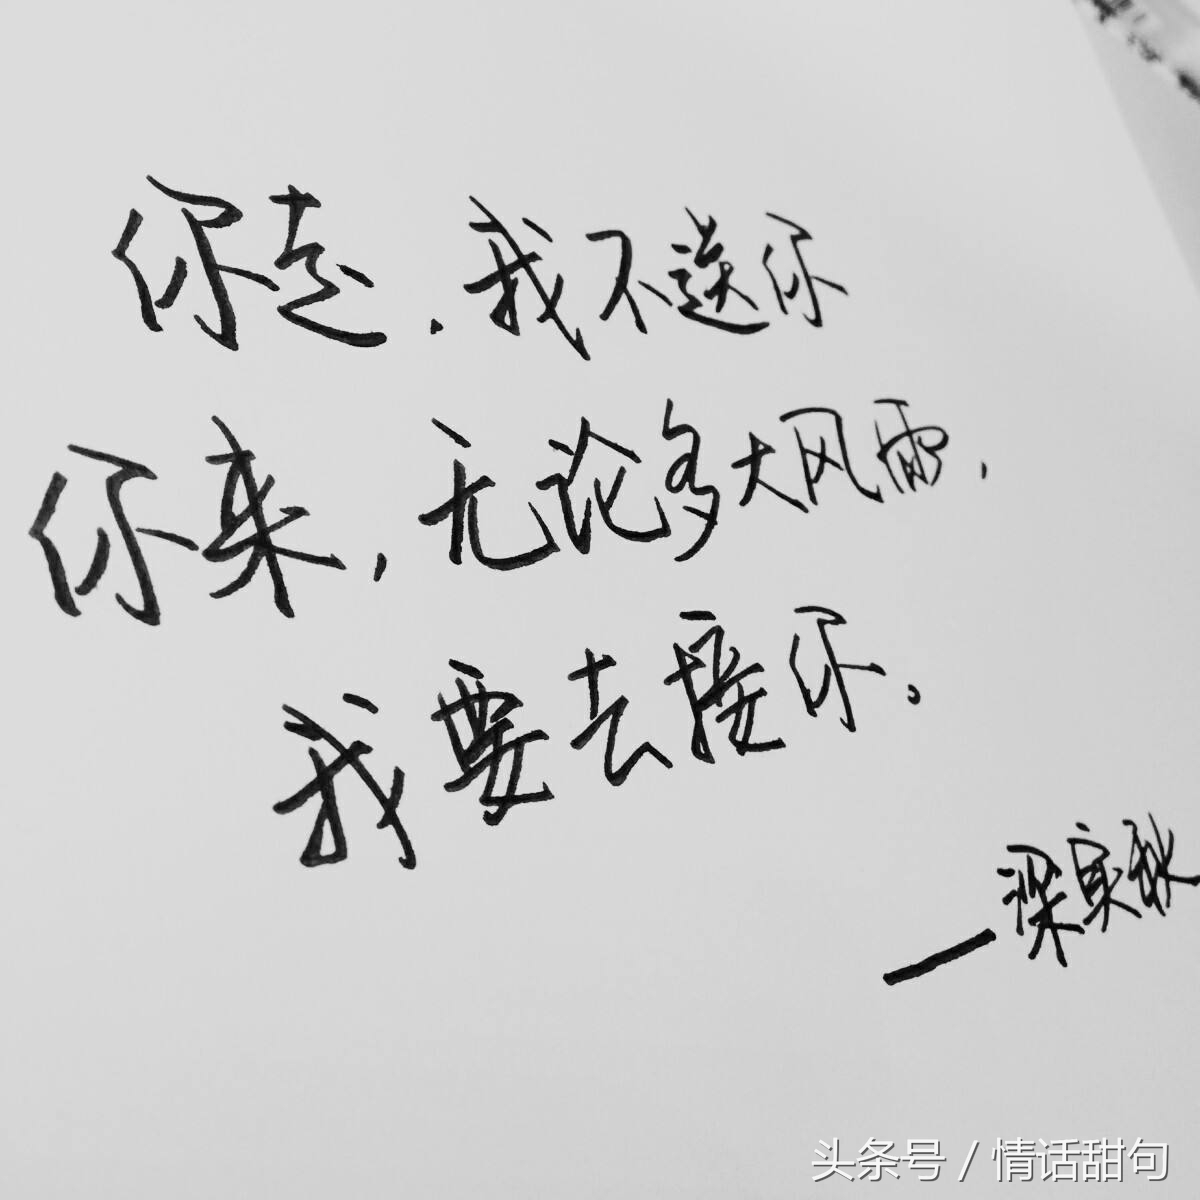 你走,我不送你
你来,无论多大风雨,
我要去接你。
—梁实秋
头条号 / 情话甜句